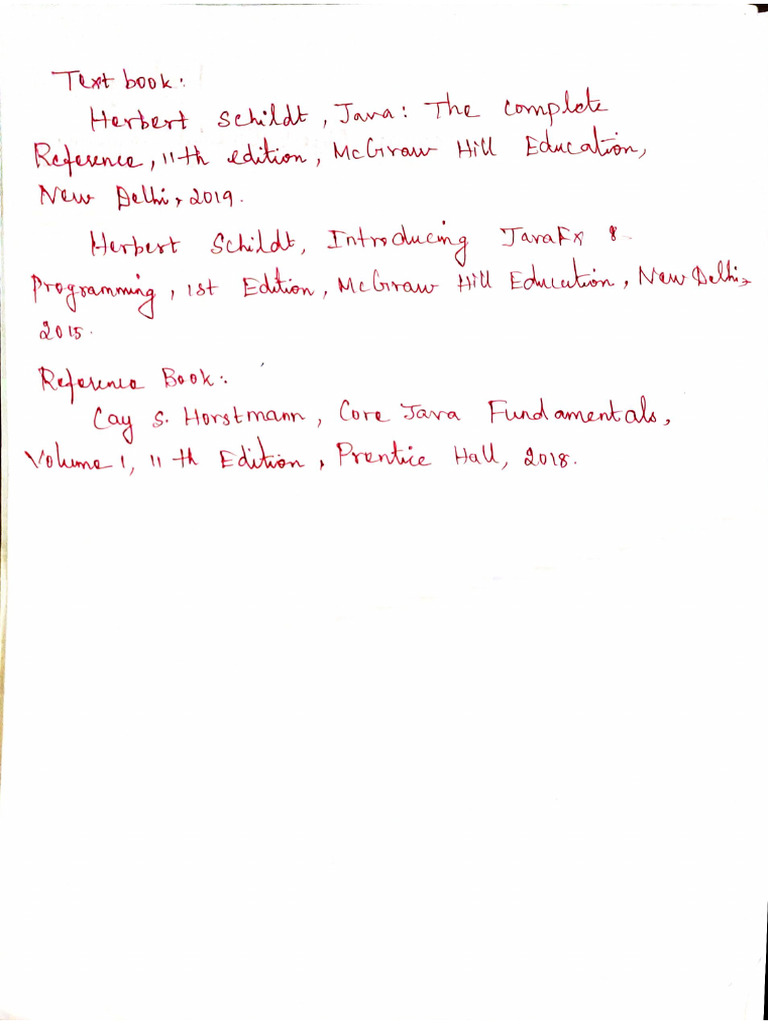 Text book:
Herbert Schildt, Java: The complete
Reference, 11th edition, McGraw Hill Education,
New Delhi, 2019.
Herbert Schildt, Introducing JavaFx 8
Programming, 1st Edition, McGraw Hill Education, New Delhi,
2015.
Reference Book:
Cay S. Horstmann, Core Java Fundamentals,
Volume 1, 11th Edition, Prentice Hall, 2018.